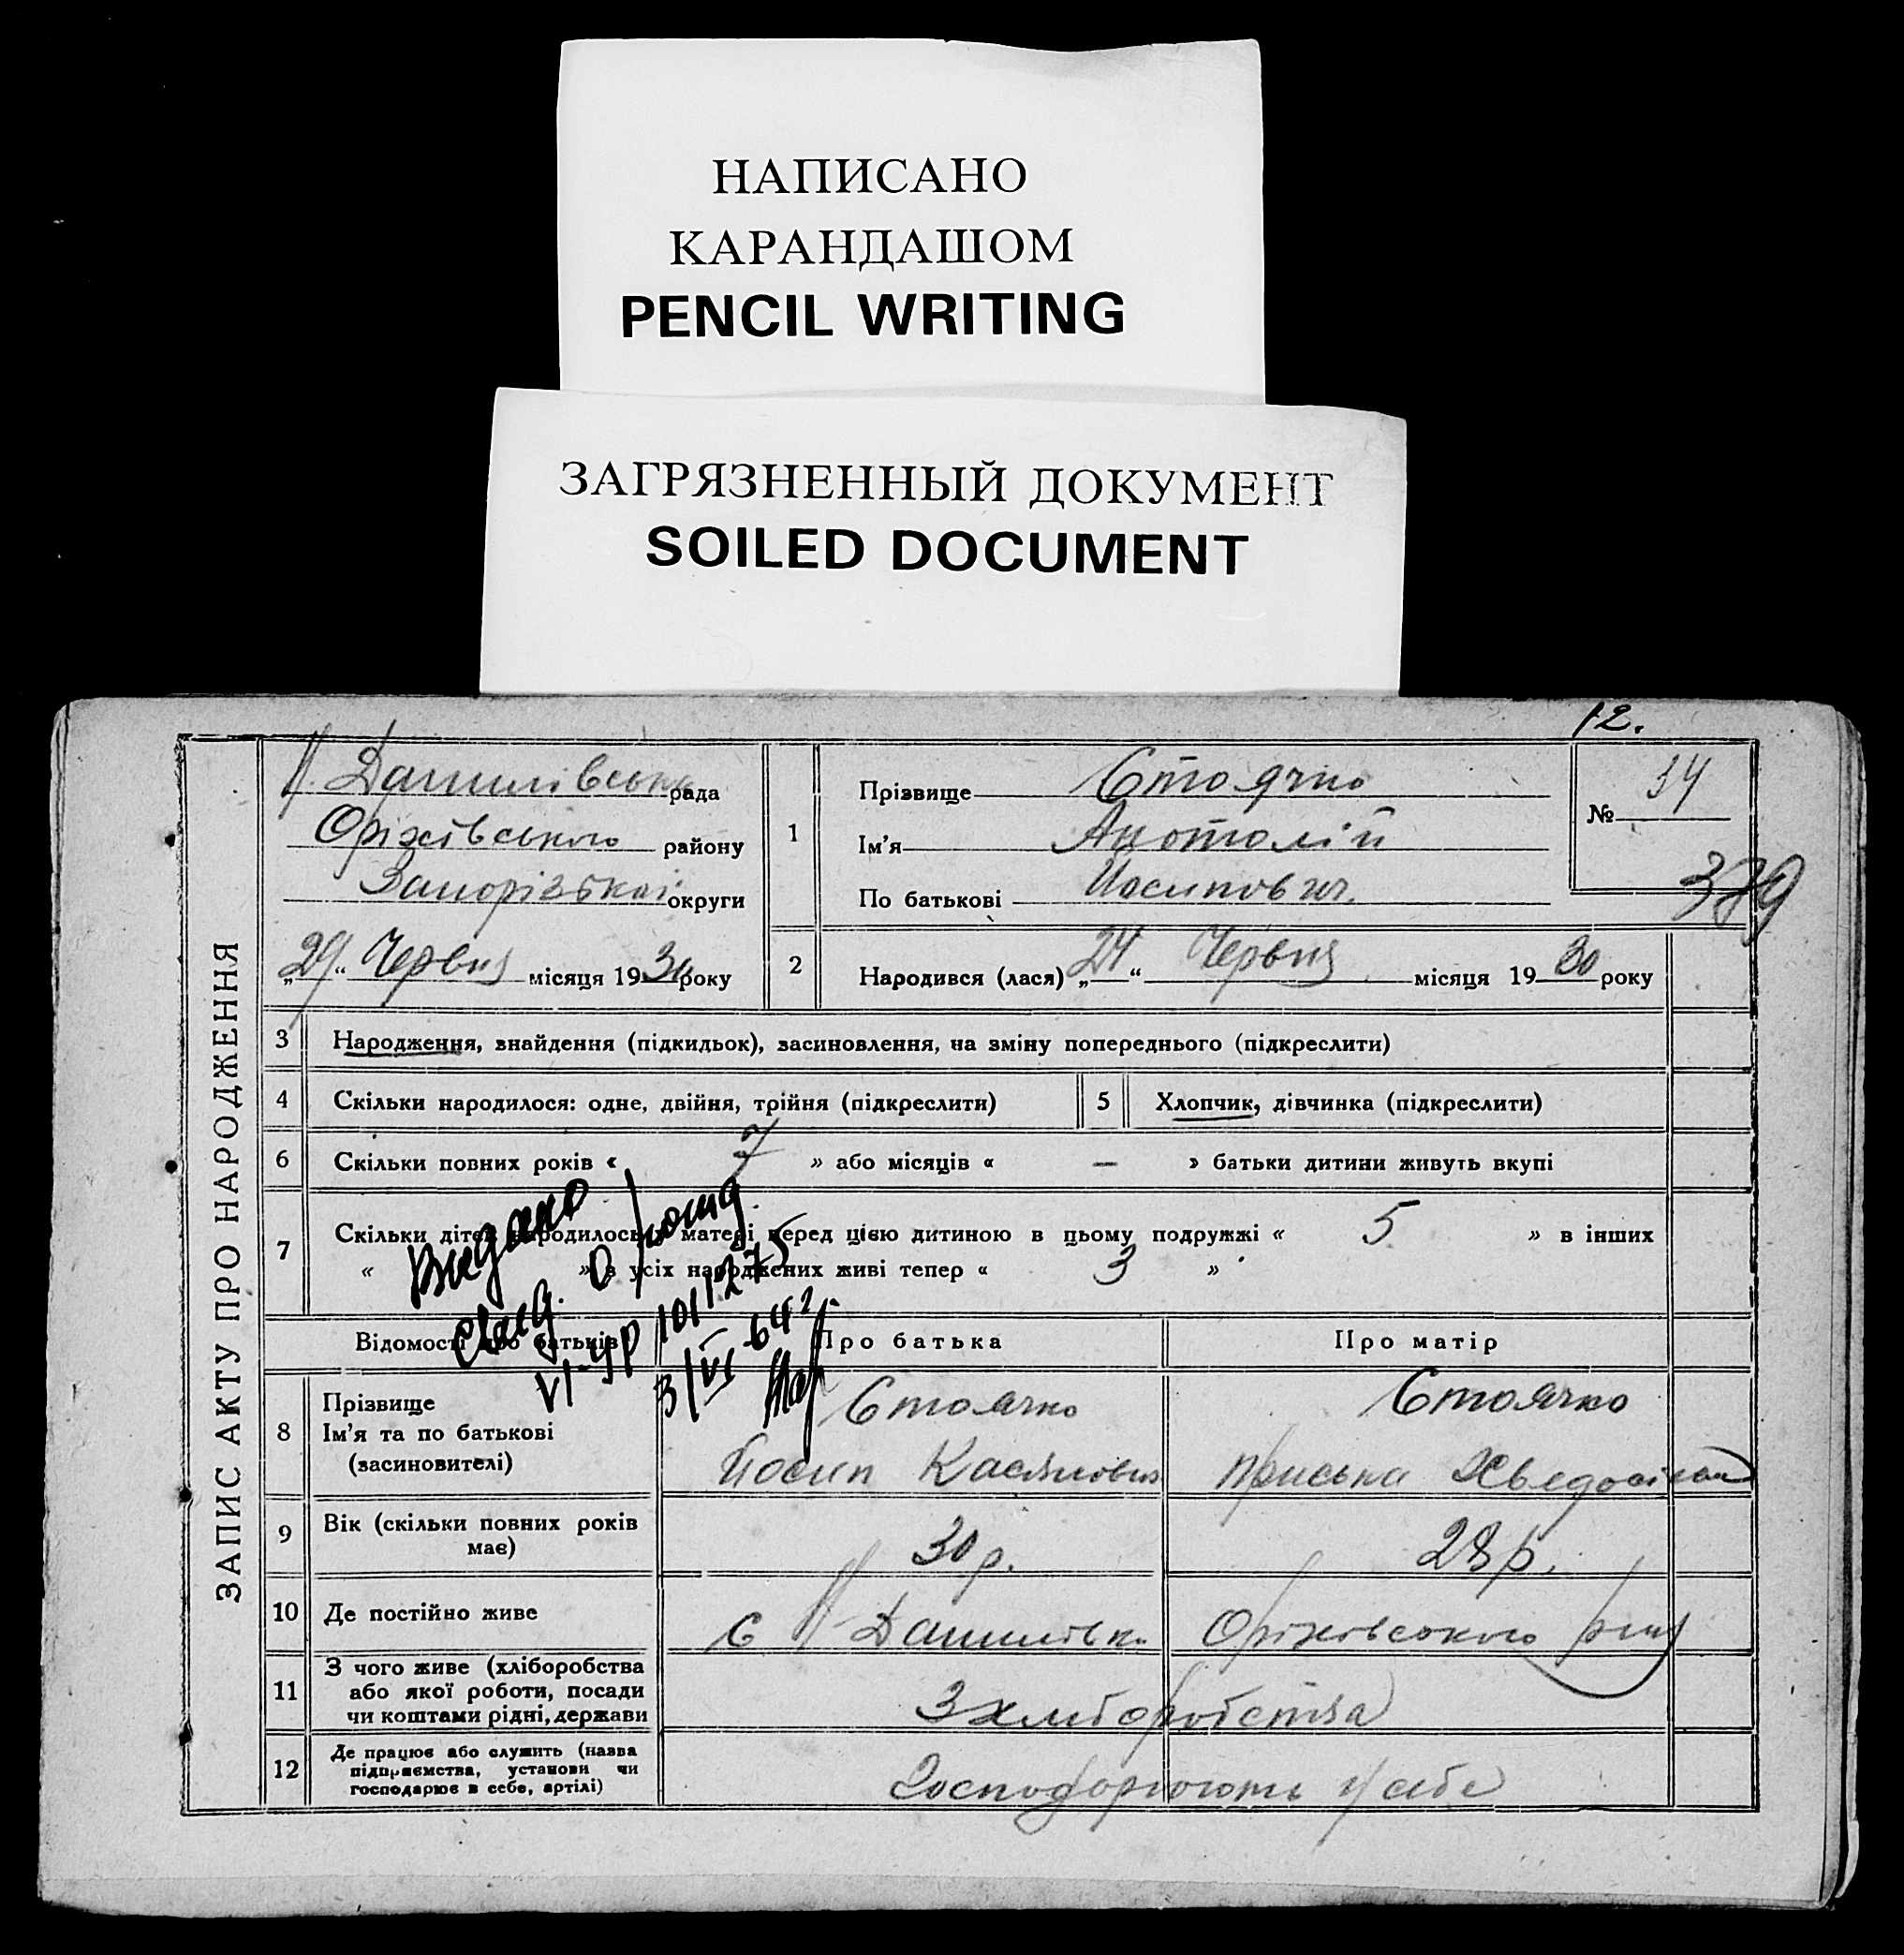 НАПИСАНО
КАРАНДАШОМ
PENCIL WRITING
ЗАГРЯЗНЕННЫЙ ДОКУМЕНТ
SOILED DOCUMENT
12.
ЗАПИС АКТУ ПРО НАРОДЖЕННЯ
Данилівська рада
Оріхівського району
Запорізької округи
„29“ Червня місяця 1930 року
1
Прізвище Стоячко
Ім'я Анотолій
По батькові Йосипович
№ 34
379
2
Народився (лася) „24“ Червня місяця 1930 року
3 Народження, знайдення (підкидьок), засиновлення, на зміну попереднього (підкреслити)
4 Скільки народилося: одне, двійня, трійня (підкреслити)
5 Хлопчик, дівчинка (підкреслити)
6 Скільки повних років « 7 » або місяців « — » батьки дитини живуть вкупі
7 Скільки дітей народилось у матері перед цією дитиною в цьому подружжі « 5 » в інших
« » в усіх народжених живі тепер « 3 »
Видано
свид. о рожд.
VI-ЯР 1011275
3/VI-64 г.
Відомості про батьків
Про батька
Про матір
8 Прізвище
Ім'я та по батькові
(засиновителі)
Стоячко
Йосип Касянович
Стоячко
Приська Хведорівна
9 Вік (скільки повних років
має)
30 р.
28 р.
10 Де постійно живе
с Данилівка Оріхівського рну
11 З чого живе (хліборобства
або якої роботи, посади
чи коштами рідні, держави
З хліборобства
12 Де працює або служить (назва
підприємства, установи чи
господарює в себе, артілі)
Господорюють у себе